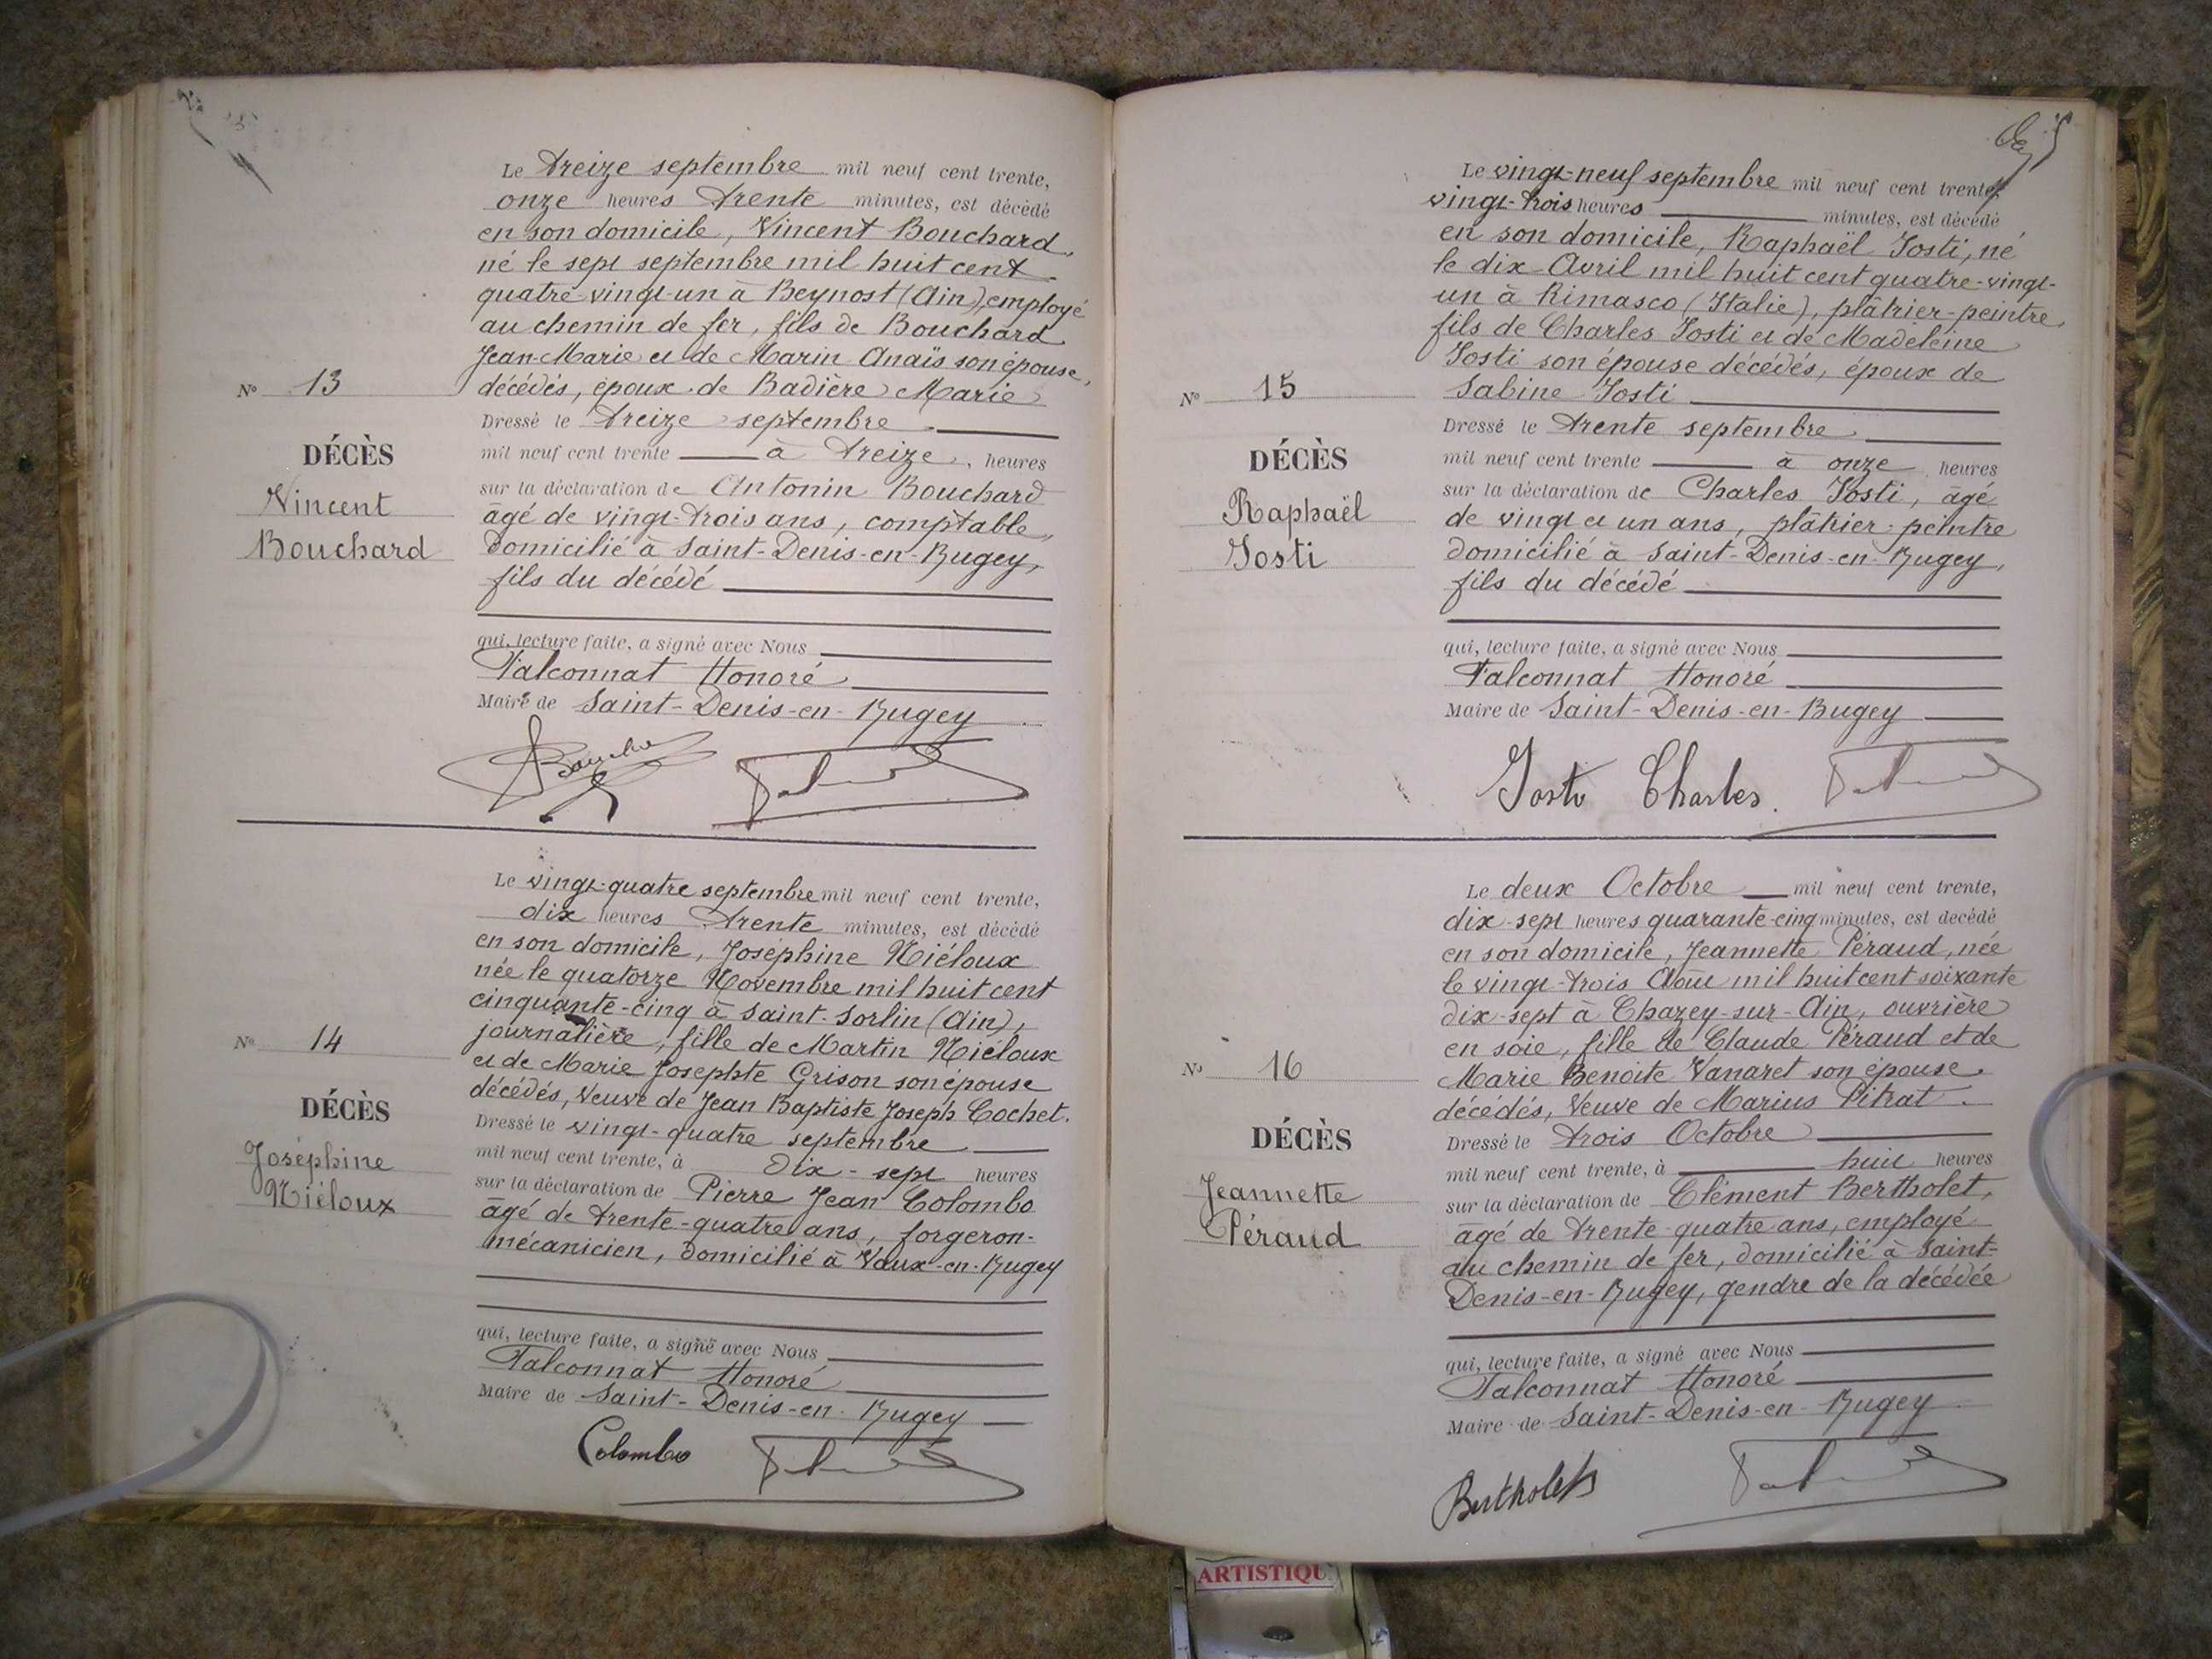 Le treize septembre mil neuf cent trente,
onze heures trente minutes, est décédé
en son domicile, Vincent Bouchard,
né le sept septembre mil huit cent
quatre vingt-un à Beynost (Ain), employé
au chemin de fer, fils de Bouchard
Jean-Marie et de Marin Anaïs son épouse,
décédés, époux de Badière Marie
N° 13
DÉCÈS
Vincent
Bouchard
Dressé le treize septembre
mil neuf cent trente à treize, heures
sur la déclaration de Antonin Bouchard
âgé de vingt-trois ans, comptable,
domicilié à Saint-Denis-en-Bugey,
fils du décédé
qui, lecture faite, a signé avec Nous
Falconnat Honoré
Maire de Saint-Denis-en-Bugey
Le vingt-quatre septembre mil neuf cent trente,
dix heures trente minutes, est décédé
en son domicile, Joséphine Niéloux
née le quatorze Novembre mil huit cent
cinquante-cinq à Saint-Sorlin (Ain),
journalière, fille de Martin Niéloux
et de Marie Josephte Grison son épouse
décédés, Veuve de Jean Baptiste Joseph Cochet.
N° 14
DÉCÈS
Joséphine
Niéloux
Dressé le vingt-quatre septembre
mil neuf cent trente, à Dix-sept heures
sur la déclaration de Pierre Jean Colombo
âgé de trente-quatre ans, forgeron-
mécanicien, domicilié à Vaux-en-Bugey
qui, lecture faite, a signé avec Nous
Falconnat Honoré
Maire de Saint-Denis-en-Bugey
Colombo
Le vingt-neuf septembre mil neuf cent trente,
vingt-trois heures minutes, est décédé
en son domicile, Raphaël Iosti, né
le dix Avril mil huit cent quatre-vingt-
un à Rimasco (Italie), plâtrier-peintre,
fils de Charles Iosti et de Madeleine
Iosti son épouse décédés, époux de
Sabine Iosti
N° 15
DÉCÈS
Raphaël
Iosti
Dressé le trente septembre
mil neuf cent trente à onze heures
sur la déclaration de Charles Iosti, âgé
de vingt et un ans, plâtrier-peintre
domicilié à Saint-Denis-en-Bugey,
fils du décédé
qui, lecture faite, a signé avec Nous
Falconnat Honoré
Maire de Saint-Denis-en-Bugey
Iosti Charles.
Le deux Octobre mil neuf cent trente,
dix-sept heures quarante-cinq minutes, est decédé
en son domicile, Jeannette Péraud, née
le vingt-trois Août mil huit cent soixante
dix-sept à Chazey-sur-Ain, ouvrière
en soie, fille de Claude Péraud et de
Marie Benoite Vanaret son épouse
décédés, Veuve de Marius Pitrat.
N° 16
DÉCÈS
Jeannette
Péraud
Dressé le trois Octobre
mil neuf cent trente, à huit heures
sur la déclaration de Clément Bertholet,
âgé de trente-quatre ans, employé
au chemin de fer, domicilié à Saint-
Denis-en-Bugey, gendre de la décédée
qui, lecture faite, a signé avec Nous
Falconnat Honoré
Maire de Saint-Denis-en-Bugey
Bertholet
ARTISTIQU